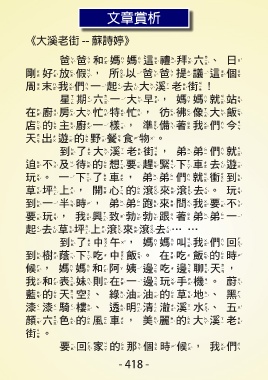 文章賞析
《大溪老街 -- 蘇詩婷》
爸爸和媽媽這禮拜六、日
剛好放假，所以爸爸提議這個
周末我們一起去大溪老街！
星期六一大早，媽媽就站
在廚房大忙特忙，彷彿像大飯
店的主廚一樣，準備著我們今
天出遊的野餐食物。
到了大溪老街，弟弟們就
迫不及待的想要趕緊下車去遊
玩。一下了車，弟弟們就衝到
草坪上，開心的滾來滾去。玩
到一半時，弟弟跑來問我要不
要玩，我興致勃勃跟著弟弟一
起去草坪上滾來滾去……
到了中午，媽媽叫我們回
到樹蔭下吃中飯。在吃飯的時
候，媽媽和阿姨邊吃邊聊天，
我和表妹則在一邊玩手機。蔚
藍的天空、綠油油的草地、黑
漆漆騎樓、透明清澈溪水、五
顏六色的風車，美麗的大溪老
街。
要回家的那個時候，我們
- 418 -